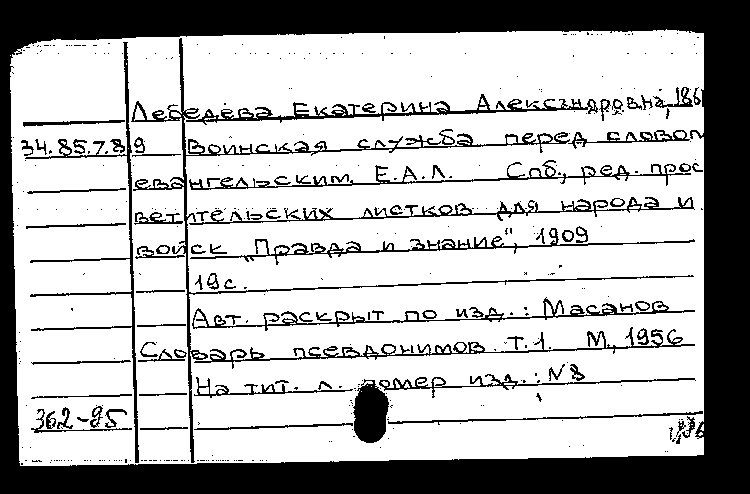 Лебедева, Екатерина Александровна, 186
34.85.7.89 Воинская служба перед словом
евангельским. Е.А.Л. Спб., ред. прос
ветительских листков для народа и
войск „Правда и знание“, 1909
19с.
Авт. раскрыт по изд.: Масанов
Словарь псевдонимов. т.1. М., 1956
На тит. л. номер изд.: N8
362-95